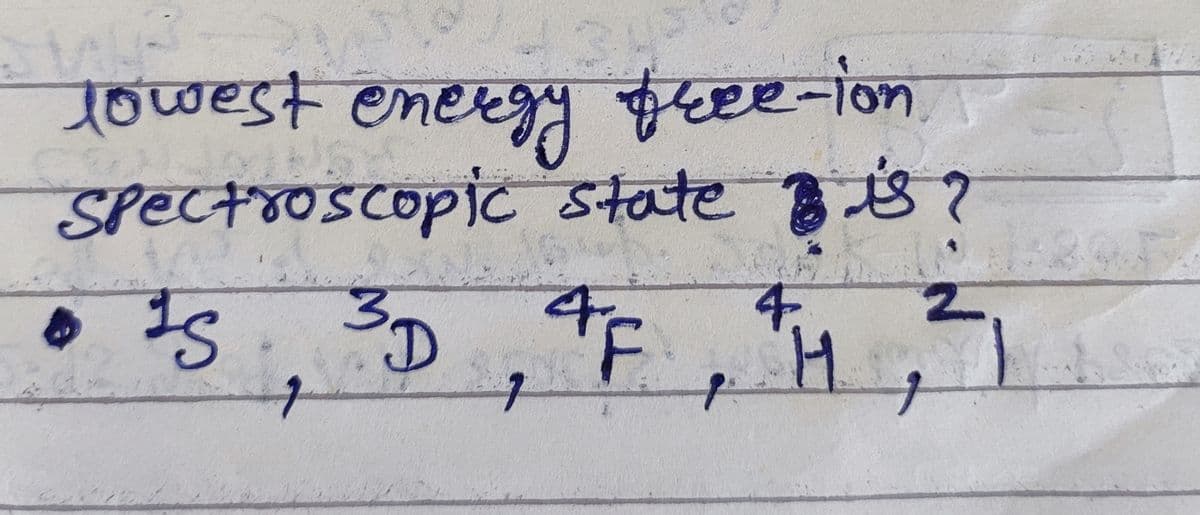 lowest energy free-ion
spectroscopic state is ?
• ¹S , ³D , ⁴F , ⁴H , ²I